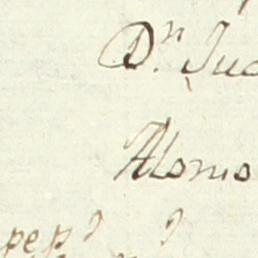 Dn. Jua
Alonso
pep